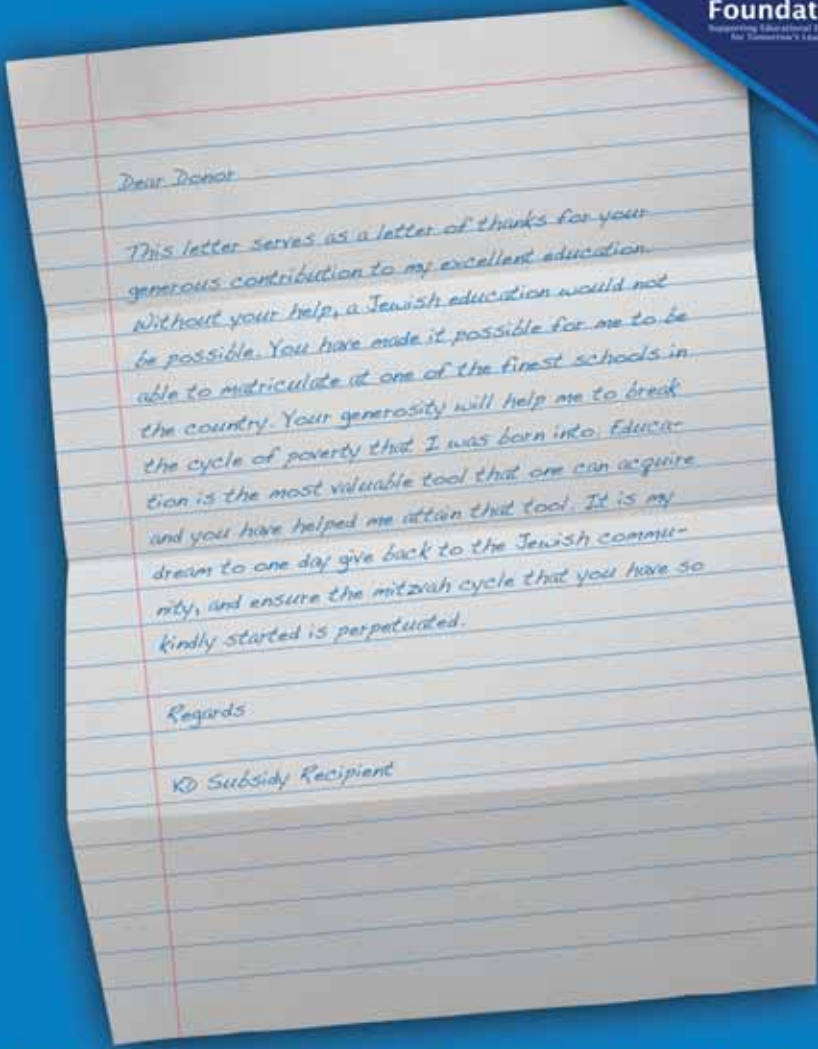 Foundat
Supporting Educational
for Tomorrow's
Dear Donor
This letter serves as a letter of thanks for your
generous contribution to my excellent education.
Without your help, a Jewish education would not
be possible. You have made it possible for me to be
able to matriculate at one of the finest schools in
the country. Your generosity will help me to break
the cycle of poverty that I was born into. Educa-
tion is the most valuable tool that one can acquire
and you have helped me attain that tool. It is my
dream to one day give back to the Jewish commu-
nity, and ensure the mitzvah cycle that you have so
kindly started is perpetuated.
Regards
KD Subsidy Recipient